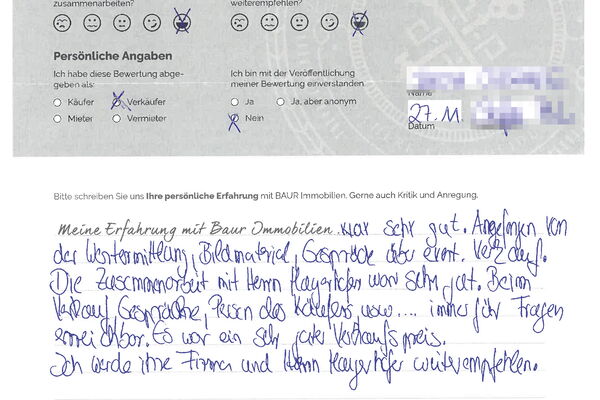 zusammenarbeiten?
weiterempfehlen?
Persönliche Angaben
Ich habe diese Bewertung abge-
geben als:
Ich bin mit der Veröffentlichung
meiner Bewertung einverstanden
Käufer Verkäufer
Ja Ja, aber anonym
Mieter Vermieter
Nein
Name
27. M.
Datum
Bitte schreiben Sie uns Ihre persönliche Erfahrung mit BAUR Immobilien. Gerne auch Kritik und Anregung.
Meine Erfahrung mit Baur Immobilien war sehr gut. Angefangen von
der Wertermittlung, Bildmaterial, Gespräche über event. Verkauf.
Die Zusammenarbeit mit Herrn Mayerhöfer war sehr gut. Beim
Verkauf, Gespräche, Person des Käufers, usw.... immer für Fragen
erreichbar. Es war ein sehr guter Verkaufspreis.
Ich werde ihre Firma und Herrn Mayerhöfer weiterempfehlen.